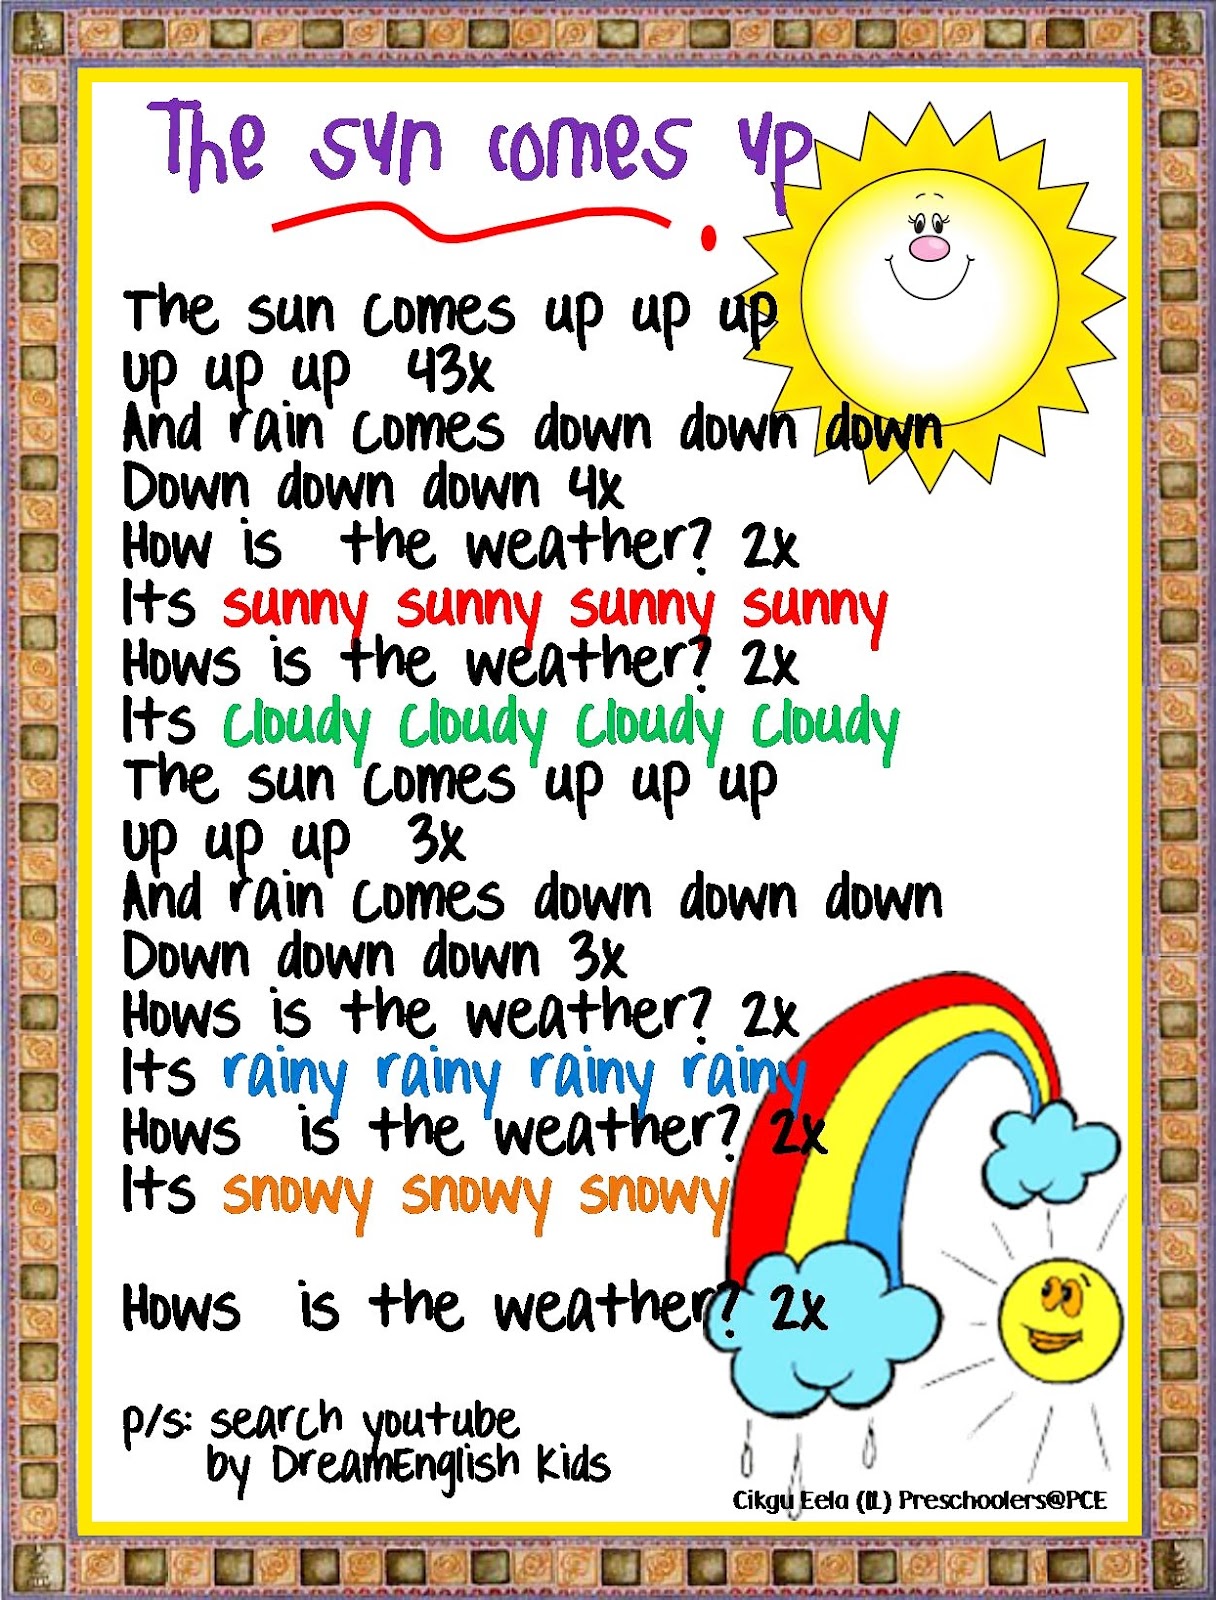 The sun comes up
The sun comes up up up
up up up 43x
And rain comes down down down
Down down down 4x
How is the weather? 2x
Its sunny sunny sunny sunny
Hows is the weather? 2x
Its cloudy cloudy cloudy cloudy
The sun comes up up up
up up up 3x
And rain comes down down down
Down down down 3x
Hows is the weather? 2x
Its rainy rainy rainy rainy
Hows is the weather? 2x
Its snowy snowy snowy
Hows is the weather? 2x
p/s: search youtube
by DreamEnglish Kids
Cikgu Eela (IL) Preschoolers@PCE